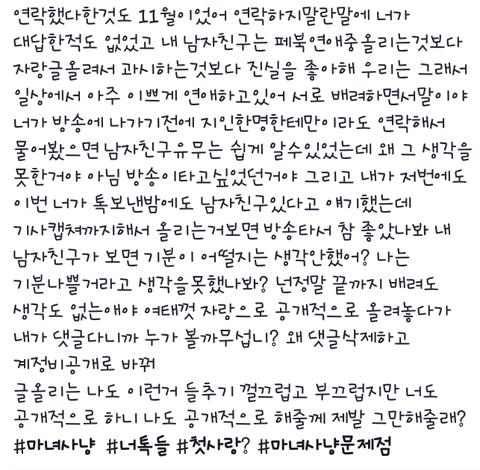 연락했다한것도 11월이었어 연락하지말란말에 너가
대답한적도 없었고 내 남자친구는 페북연애중올리는것보다
자랑글올려서 과시하는것보다 진실을 좋아해 우리는 그래서
일상에서 아주 이쁘게 연애하고있어 서로 배려하면서말이야
너가 방송에 나가기전에 지인한명한테만이라도 연락해서
물어봤으면 남자친구유무는 쉽게 알수있었는데 왜 그 생각을
못한거야 아님 방송이타고싶었던거야 그리고 내가 저번에도
이번 너가 톡보낸밤에도 남자친구있다고 얘기했는데
기사캡쳐까지해서 올리는거보면 방송타서 참 좋았나봐 내
남자친구가 보면 기분이 어떨지는 생각안했어? 나는
기분나쁠거라고 생각을못했나봐? 넌정말 끝까지 배려도
생각도 없는애야 여태껏 자랑으로 공개적으로 올려놓다가
내가 댓글다니까 누가 볼까무섭니? 왜 댓글삭제하고
계정비공개로 바꿔
글올리는 나도 이런거 들추기 껄끄럽고 부끄럽지만 너도
공개적으로 하니 나도 공개적으로 해줄께 제발 그만해줄래?
#마녀사냥 #너톡들 #첫사랑? #마녀사냥문제점